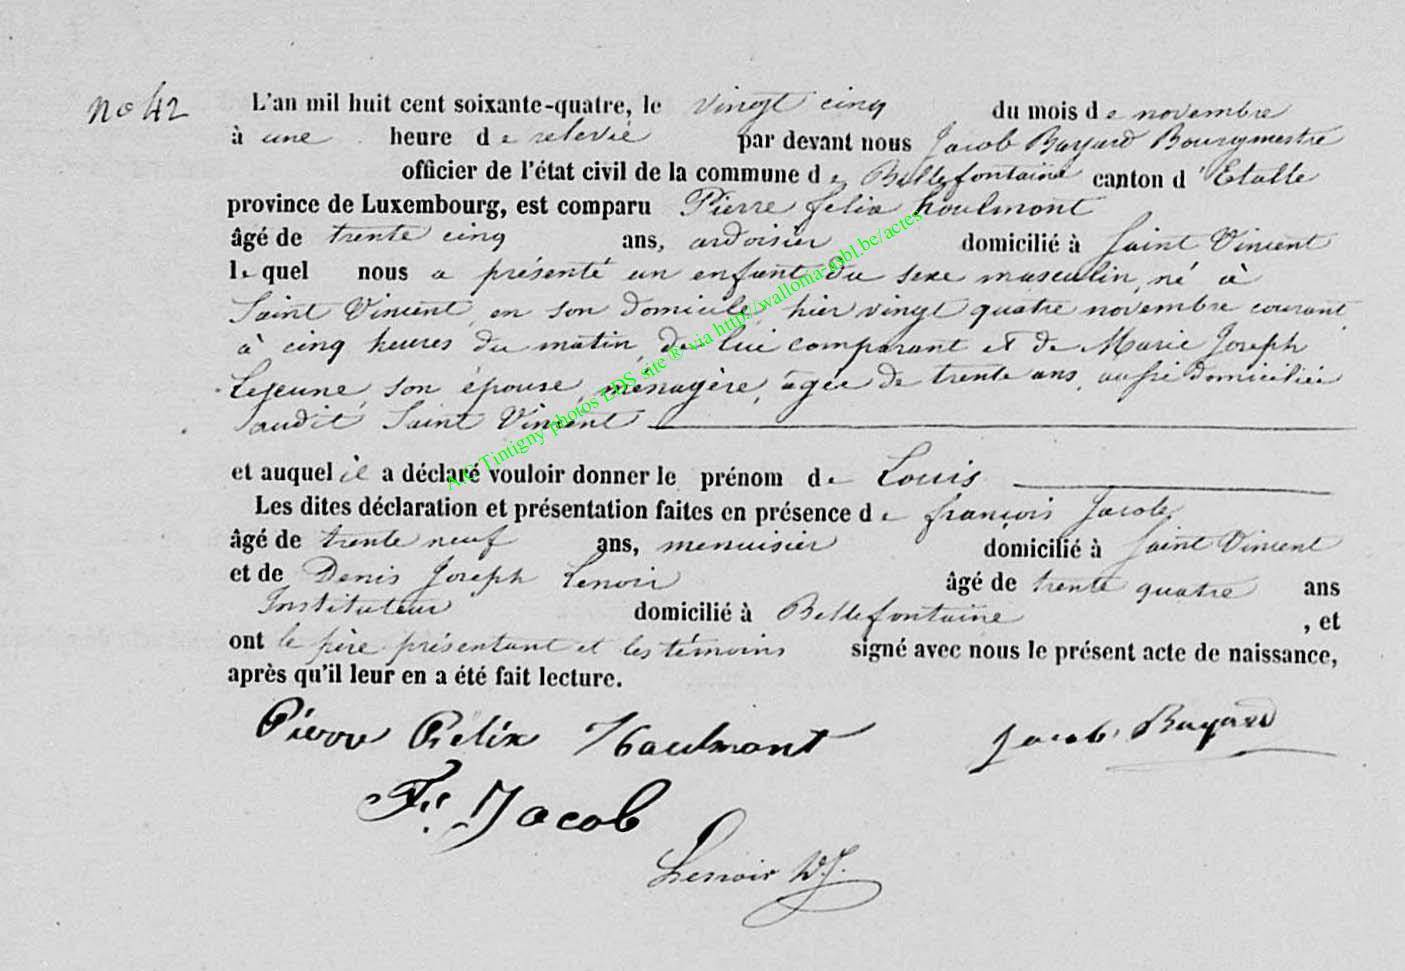 no 42
L'an mil huit cent soixante-quatre, le vingt cinq du mois de novembre
à une heure de relevée par devant nous Jacob Bayard Bourgmestre
officier de l'état civil de la commune de Bellefontaine canton d'Etalle
province de Luxembourg, est comparu Pierre felix houlmont
âgé de trente cinq ans, ardoisier domicilié à Saint Vincent
lequel nous a présenté un enfant du sexe masculin, né à
Saint Vincent, en son domicile, hier vingt quatre novembre courant,
à cinq heures du matin, de lui comparant et de Marie Joseph
Lejeune, son épouse, ménagère, âgée de trente ans, aussi domiciliée
audit Saint Vincent
et auquel il a déclaré vouloir donner le prénom de Louis
Les dites déclaration et présentation faites en présence de françois Jacob,
âgé de trente neuf ans, menuisier domicilié à Saint Vincent
et de Denis Joseph Lenoir âgé de trente quatre ans
Instituteur domicilié à Bellefontaine, et
ont le père présentant et les témoins signé avec nous le présent acte de naissance,
après qu'il leur en a été fait lecture.
Pierre Félix Houlmont Jacob Bayard
Fs. Jacob
Lenoir D.J.
A.G Tintigny photos LDS site ® via http://walloma-asbl.be/actes